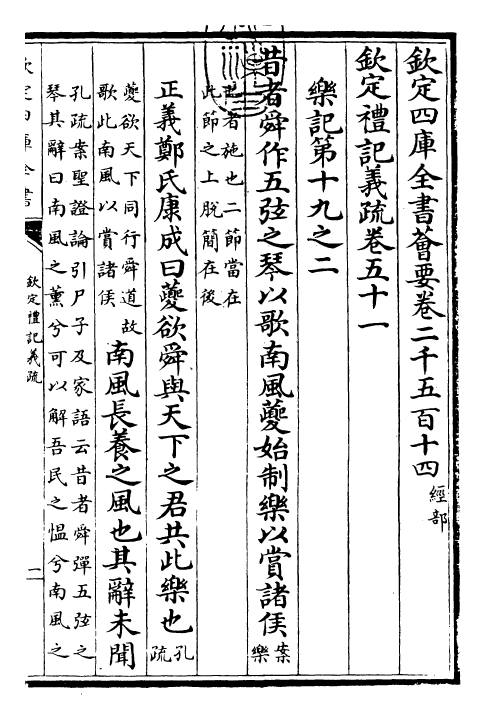 欽定四庫全書薈要卷二千五百十四經部
欽定禮記義疏卷五十一
樂記第十九之二
昔者舜作五弦之琴以歌南風夔始制樂以賞諸侯案樂
也者施也二節當在
此節之上脫簡在後
正義鄭氏康成曰夔欲舜與天下之君共此樂也孔疏
夔欲天下同行舜道故
歌此南風以賞諸侯
南風長養之風也其辭未聞
孔疏案聖證論引尸子及家語云昔者舜彈五弦之
琴其辭曰南風之薰兮可以解吾民之愠兮南風之
欽定四庫全書
欽定禮記義疏